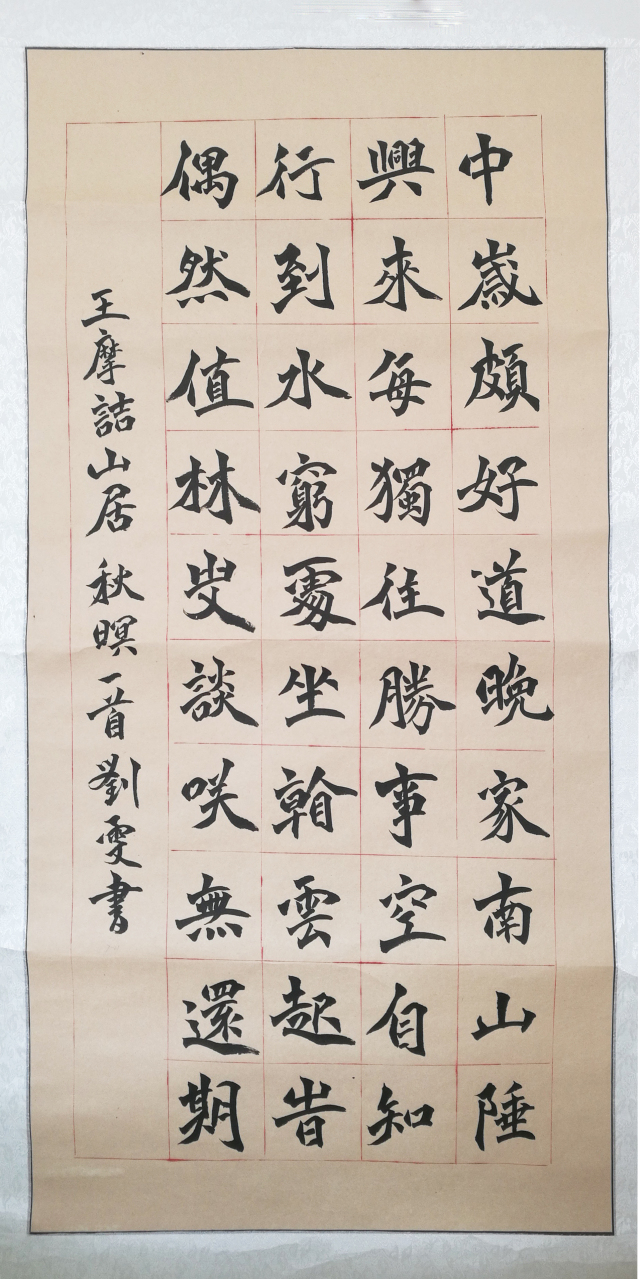 中歲頗好道晚家南山陲
興來每獨往勝事空自知
行到水窮處坐看雲起旹
偶然值林叟談咲無還期
王摩詰山居秋暝一首劉雯書